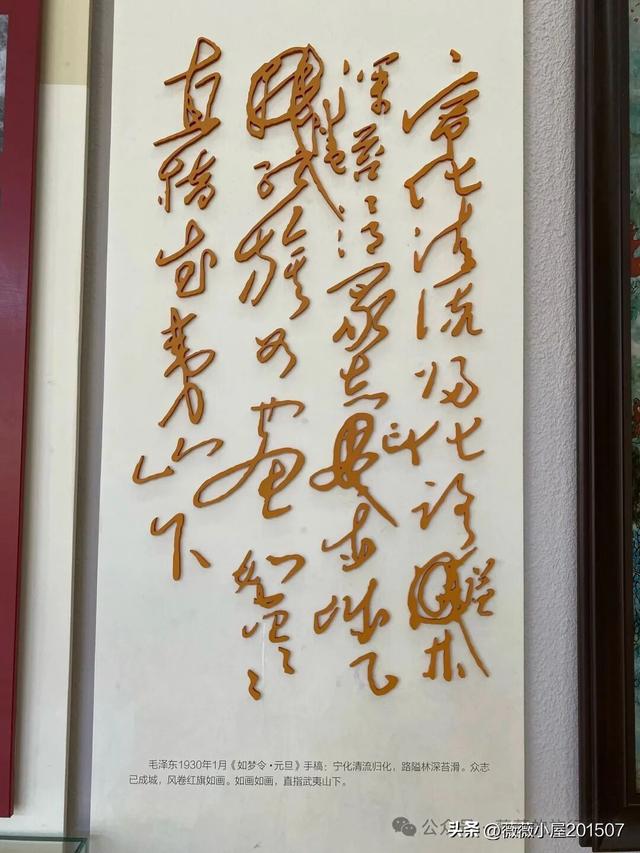 宁化清流归化路隘林
深苔滑众志成城
红旗如画如画
直指武夷山下
毛泽东1930年1月《如梦令·元旦》手稿：宁化清流归化，路隘林深苔滑。众志
已成城，风卷红旗如画。如画如画，直指武夷山下。
公众号
头条 @薇薇小屋201507